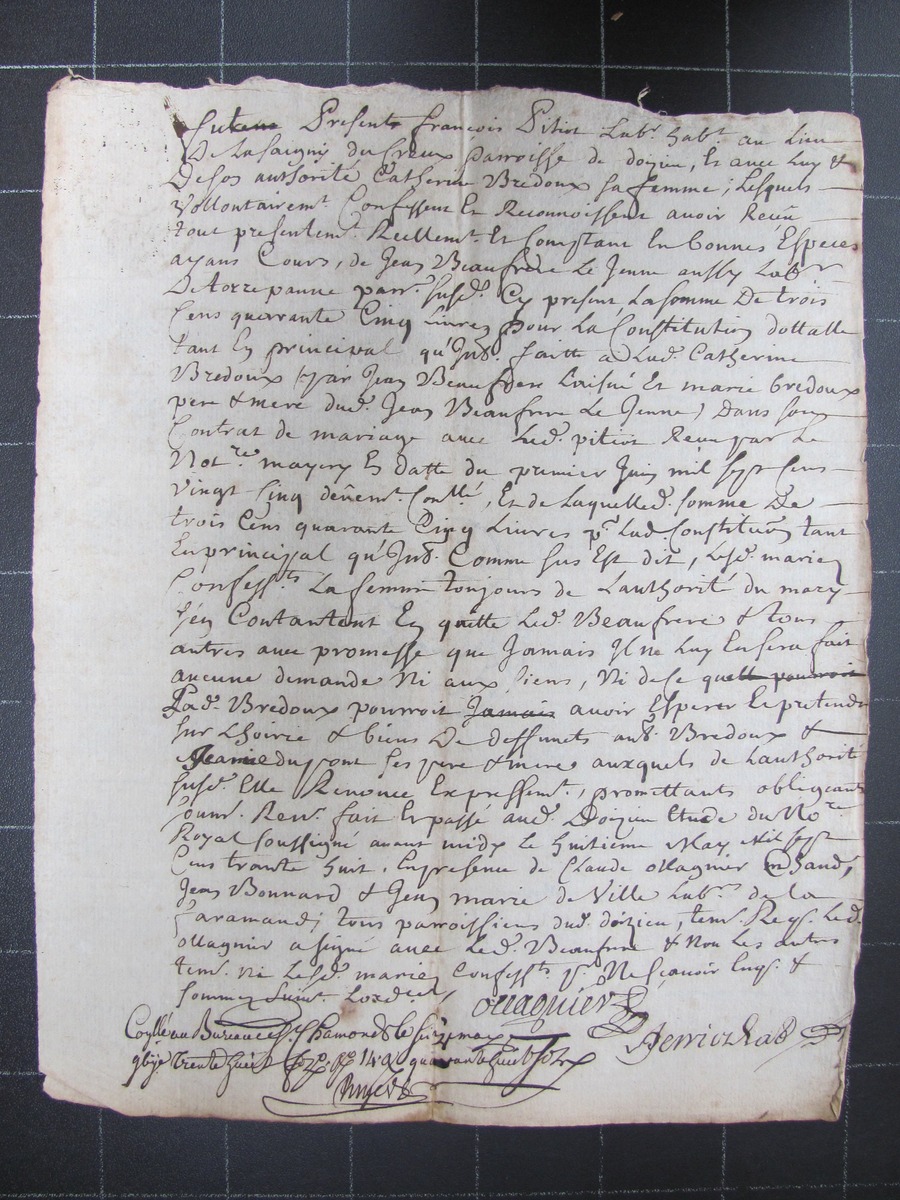 fut Present francois Pitiot Lab.r hab.t au Lieu
De Lafaigny du Creux parroisse de doizieu, Et avec Luy &
De sos authorité Catherine Bredoux sa femme; Lesquels
vollontairem.t Confessent Et Reconnoissent avoir Receu
tout presentem.t Reellem.t Et Comptant En bonnes Especes
ayans Cours, de Jean Beaufrere Le Jenne aussy Lab.r
De torrepanne parr. susd. Cy present La somme De trois
Cens quarante Cinq Livres pour La Constitution dottalle
tant En principal qu'Int. faitte a Lad. Catherine
Bredoux (par Jean Beaufrere Laisné Et marie bredoux
pere & mere dud. Jean Beaufrere Le Jenne) Dans son
Contrat de mariage avec Led. pitiot Receu par Le
Not.re mayery En datte du premier Juin mil sept Cens
vingt Cinq dëüem.t Conllé, Et de Laquelled. somme De
trois Cens quarante Cinq Livres p.r Lad. Constitüon tant
En principal qu'Int. Comme sus Est dit, Lesd. mariez
Confess.ts La femme toujours de Lauthorité du mary
s'en Contantent En quitte Led. Beaufrere & tous
autres avec promesse que Jamais Il ne Luy En sera fait
aucune demande Ni aux siens, Ni de ce quelle pourroit
Lad. Bredoux pourroit Jamais avoir Esperer Et pretendre
sur Lhoirie & biens De deffunets ant. Bredoux &
Jeanne dupont ses pere & mere auxquels de Lauthorité
susd. Elle Renonce Expressem.t, promettants obligeants
soum. Ren. fait Et passé aud. Doizieu Etude du No.re
Royal soussigné avant midy le huitieme May Mil sept
Cens trante huit. En presence de Claude ollagnier mhand,
Jean Bonnard & Jean marie de Ville Lab.rs de la
faramand; tous parroissiens dud. doizieu, tem. Reqs. Led.
ollagnier a signé avec Led. Beaufrere & Non Les autres
tem. ni Lesd. mariez Confess.ts p. Ne sçavoir Enqs. &
sommez suiv.t Lord.ce
ollagnier
Conllé au Bureau de St Chamond le may
trente huit quarante huit sols